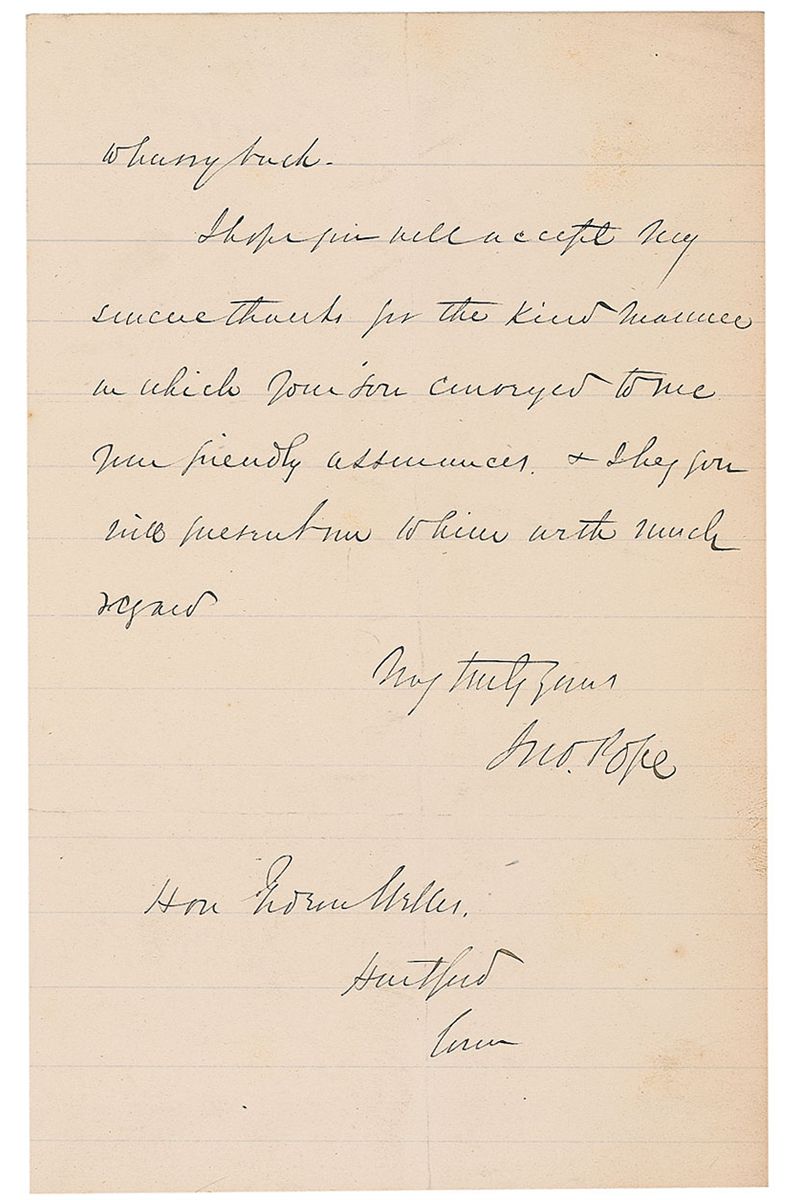 to carry back.
I hope you will accept my
sincere thanks for the kind manner
in which your son conveyed to me
your friendly assurances. & I beg you
will present me to him with much
regard
Very truly yours
Jno. Pope
Hon Gideon Welles.
Hartford
Conn